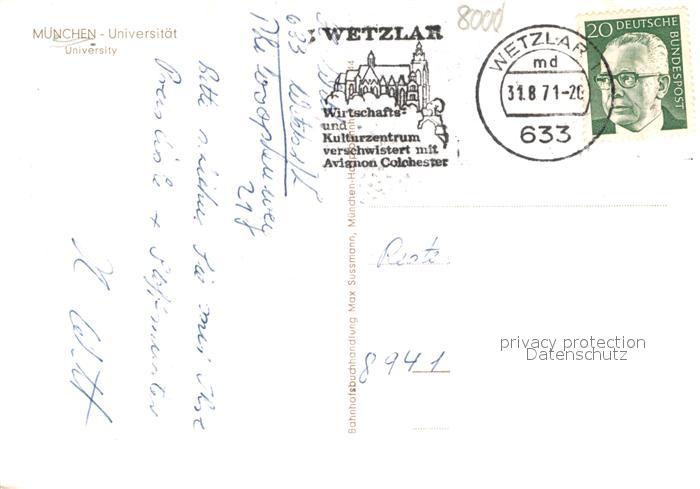 MÜNCHEN - Universität
University
8000
WETZLAR
Wirtschafts-
und
Kulturzentrum
verschwistert mit
Avignon Colchester
WETZLAR
md
31.8.71-20
633
20
DEUTSCHE
BUNDESPOST
633 Wetzlar
218
Bitte Sie mir Ihre
Preisliste +
Bahnhofsbuchhandlung Max Sussmann, München-Hauptbahnhof
8941
privacy protection
Datenschutz